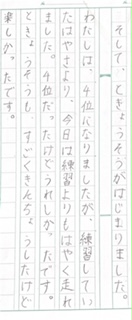 そして、ときょうそうがはじまりました。
わたしは、4位になりましたが、練習してい
たはやさより、今日は練習よりもはやく走れ
ました。4位だったけどうれしかったです。
ときょうそうも、すごくきんちょうしたけど
楽しかったです。